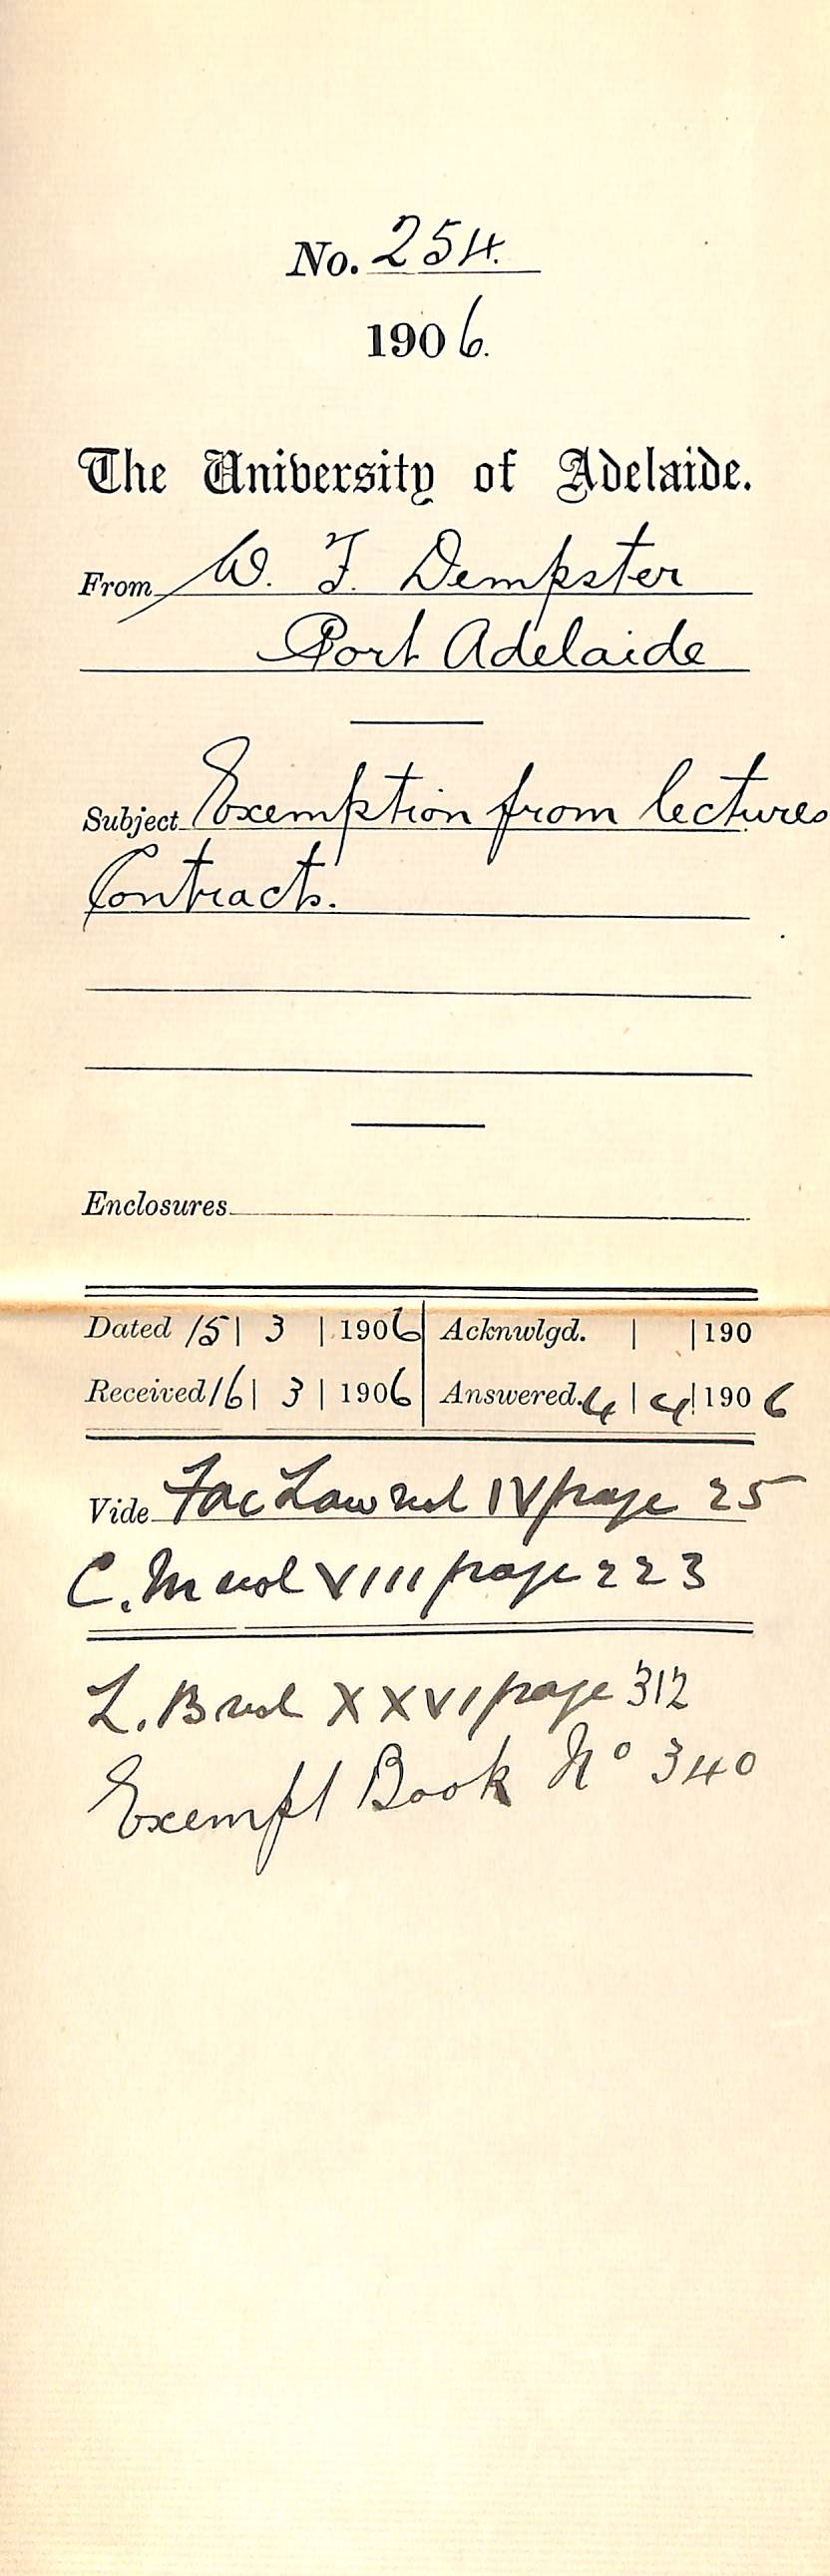 No. 254.
1906.
The University of Adelaide.
From W. F. Dempster
Port Adelaide
Subject Exemption from lectures
Contracts.
Enclosures
Dated 15 | 3 | 1906 Acknwlgd. | | 190
Received 16 | 3 | 1906 Answered. 4 | 4 | 1906
Vide Fac Law vol IV page 25
C. M vol VIII page 223
L. B vol XXVI page 312
Exempt Book No 340